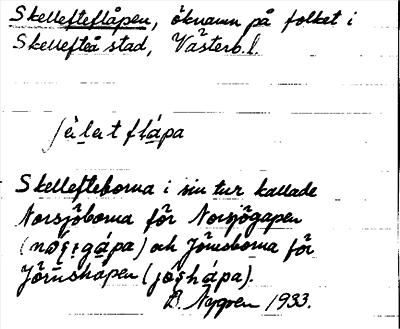 Skelleftefläpen, öknamn på folket i
Skellefteå stad, Västerb.l.
Skellefteborna i sin tur kallade
Norsjöborna för Norsjögapen
och Jörnsborna för
Jörnshåpen
E. Nygren 1933.